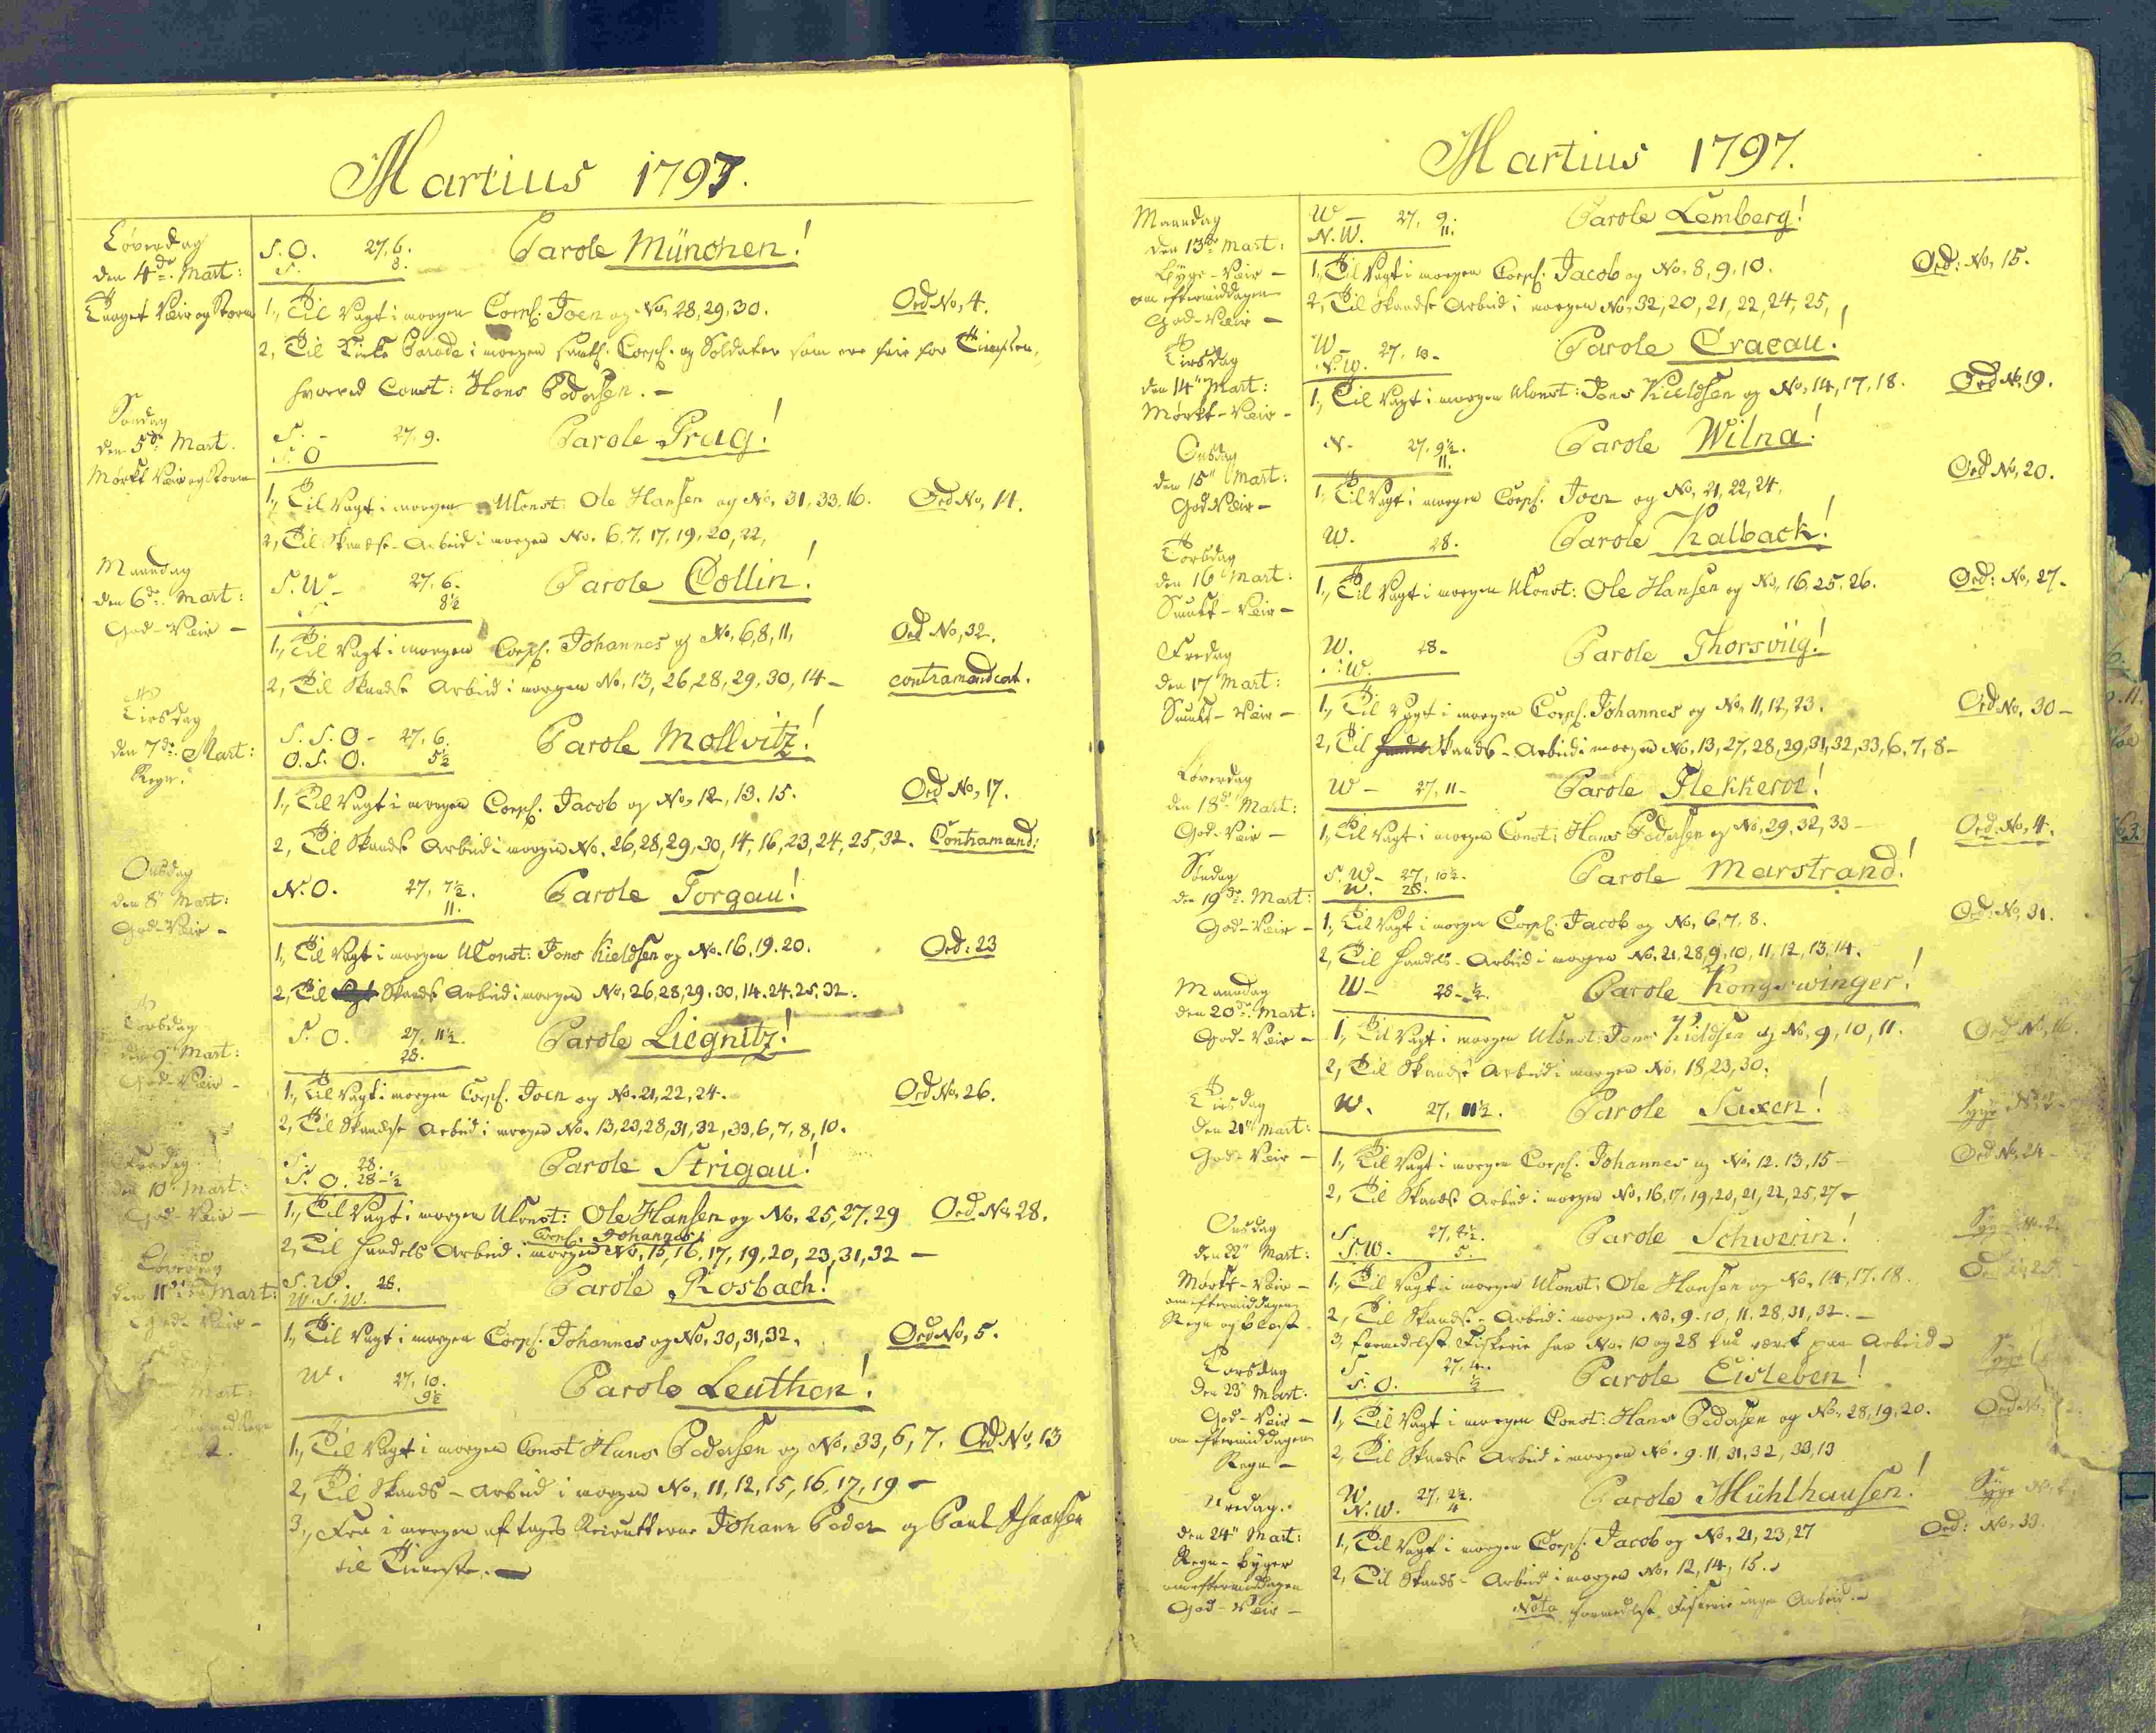 Martius 1797.
Løverdag
den 4de Mart:
Tuuget Veir og Storm
S. O. 27, 6.
S. 8.
Parole München!
1, Til Vagt i morgen Corpl. Joen og No, 28, 29, 30. Ord No, 4.
2, Til Kirke Parade i morgen samtl. Corpl. og Soldater som ere frie for Tienesten,
hvorved Const: Hans Pedersen. –
Søndag
den 5de Mart.
Mørkt Veir og Storm
S. – 27, 9.
S. O
Parole Prag!
1, Til Vagt i morgen UConst: Ole Hansen og No, 31, 33, 16. Ord No, 14.
2, Til Skandse-Arbeid i morgen No. 6, 7, 17, 19, 20, 22,
Maandag
den 6de Mart:
God-Veir –
S. W – 27, 6.
S 8½
Parole Collin!
1, Til Vagt i morgen Corpl. Johannes og No, 6, 8, 11, Ord No, 32.
2, Til Skandse Arbeid i morgen No, 13, 26, 28, 29, 30, 14 – contramandeat.
Tirsdag
den 7de Mart:
Regn.
S. S. O – 27, 6.
O. S. O. 5½
Parole Mollvitz!
1, Til Vagt i morgen Corpl. Jacob og No, 12, 13. 15. Ord No, 17.
2, Til Skandse Arbeid i morgen No. 26, 28, 29, 30, 14, 16, 23, 24, 25, 32. Contramand:
Onsdag
den 8" Mart:
God-Veir –
N. O. 27, 7½.
11.
Parole Torgau!
1, Til Vagt i morgen UConst: Jens Kieldsen og No. 16. 19. 20. Ord: 23
2, Til Skands Arbeid i morgen No, 26, 28, 29. 30, 14. 24. 25. 32.
Torsdag
den 9" Mart:
God-Veir –
S. O. 27, 11½.
28.
Parole Liegnitz!
1, Til Vagt i morgen Corpl. Joen og No. 21, 22, 24. Ord No, 26.
2, Til Skandse Arbeid i morgen No. 13, 23, 28, 31, 32, 33, 6, 7, 8, 10.
Fredag
den 10. Mart:
God-Veir –
S. 28.
S. O. 28-½
Parole Strigau!
1, Til Vagt i morgen UConst: Ole Hansen og No. 25, 27. 29 Ord No, 28.
Corpl. Johannes
2, Til Handels Arbeid i morgen No, 15, 16, 17, 19, 20, 23, 31, 32 –
Løverdag
den 11te Mart:
God-Veir –
S. W. 28.
W. S. W.
Parole Rosbach!
1, Til Vagt i morgen Corpl. Johannes og No, 30, 31, 32. Ord No, 5.
Mart:
W. 27, 10.
9½
Parole Leuthen!
1, Til Vagt i morgen Const Hans Pedersen og No, 33, 6, 7. Ord No, 13
2, Til Skands – Arbeid i morgen No, 11, 12, 15, 16, 17, 19 –
3, Fra i morgen aftages Recrutterne Johann Peder og Paul Isaacsen
til Tieneste. –
Martius 1797.
Maandag
den 13de Mart:
Byge-Veir –
om eftermiddagen
God-Veir –
W – 27, 9.
N. W. 11.
Parole Lemberg!
1, Til Vagt i morgen Corpl. Jacob og No, 8, 9, 10. Ord: No, 15.
2, Til Skandse Arbeid i morgen No, 32, 20, 21, 22, 24, 25,
Tirsdag
den 14" Mart:
Mørkt-Veir –
W – 27, 10 –
N. W.
Parole Cracau!
1, Til Vagt i morgen UConst: Jens Kieldsen og No, 14, 17, 18. Ord No, 19.
Onsdag
den 15" Mart:
God Veir –
N – 27, 9½.
11.
Parole Wilna!
1, Til Vagt i morgen Corpl. Joen og No, 21, 22, 24, Ord No, 20.
Torsdag
den 16 Mart:
Smukt-Veir –
W. 28.
Parole Kalback!
1, Til Vagt i morgen UConst: Ole Hansen og No, 16, 25. 26. Ord: No, 27.
Fredag
den 17 Mart:
Smukt-Veir –
W. 28 –
Parole Thorsviig!
1, Til Vagt i morgen Corpl. Johannes og No, 11, 12, 23. Ord No, 30 –
2, Til Skands-Arbeid i morgen No, 13, 27, 28, 29, 31, 32, 33, 6, 7, 8 –
Løverdag
den 18de Mart:
God-Veir –
W – 27, 11 –
Parole Flekkeroe!
1, Til Vagt i morgen Const: Hans Pedersen og No, 29, 32, 33 – Ord. No, 4.
Søndag
den 19de Mart:
God-Veir –
S. W – 27, 10½.
W. 28.
Parole Marstrand!
1, Til Vagt i morgen Corpl. Jacob og No, 6, 7, 8. Ord: No, 31.
2, Til Handels-Arbeid i morgen No, 21, 28, 9, 10, 11, 12, 13, 14.
Maandag
den 20de Mart:
God-Veir –
W – 28-½.
Parole Kongswinger!
1, Til Vagt i morgen UConst: Jens Kieldsen og No, 9, 10, 11. Ord No, 16.
2, Til Skandse Arbeid i morgen No, 18, 23, 30.
Tirsdag
den 21" Mart:
God-Veir –
W. 27, 11½.
Parole Saxen!
Syge No. 2 –
1, Til Vagt i morgen Corpl. Johannes og No, 12. 13, 15 – Ord No, 24 –
2, Til Skandse Arbeid i morgen No, 16, 17, 19, 20, 21, 22, 25, 27 –
Onsdag
den 22" Mart:
Mørkt-Veir –
om eftermiddagen
Regn og blæst.
S. 27, 4½.
S. W. 5.
Parole Schwerin!
Syge No. 2.
1, Til Vagt i morgen UConst. Ole Hansen og No, 14, 17. 18.
2, Til Skandse-Arbeid i morgen No, 9. 10, 11, 28, 31, 32. –
3, formedelst Fiskerie har No. 10 og 28 kun været paa Arbeid –
Torsdag
den 23" Mart:
God-Veir –
om eftermiddagen
Regn –
S 27, 4.
S. O. ½
Parole Eisleben!
Syge
1, Til Vagt i morgen Const: Hans Pedersen og No, 28, 19, 20. Ord No,
2, Til Skandse Arbeid i morgen No. 9. 11, 31, 32, 33, 13
Fredag.
den 24" Mart:
Regn-byger
om eftermiddagen
God-Veir –
W 27, 2½.
N. W. 4
Parole Mühlhausen!
Syge No. 2.
1, Til Vagt i morgen Corpl. Jacob og No, 21, 23, 27 Ord: No, 33.
2, Til Skands-Arbeid i morgen No, 12, 14, 15.
Nota formedelst Fiskerie ingen Arbeid. –